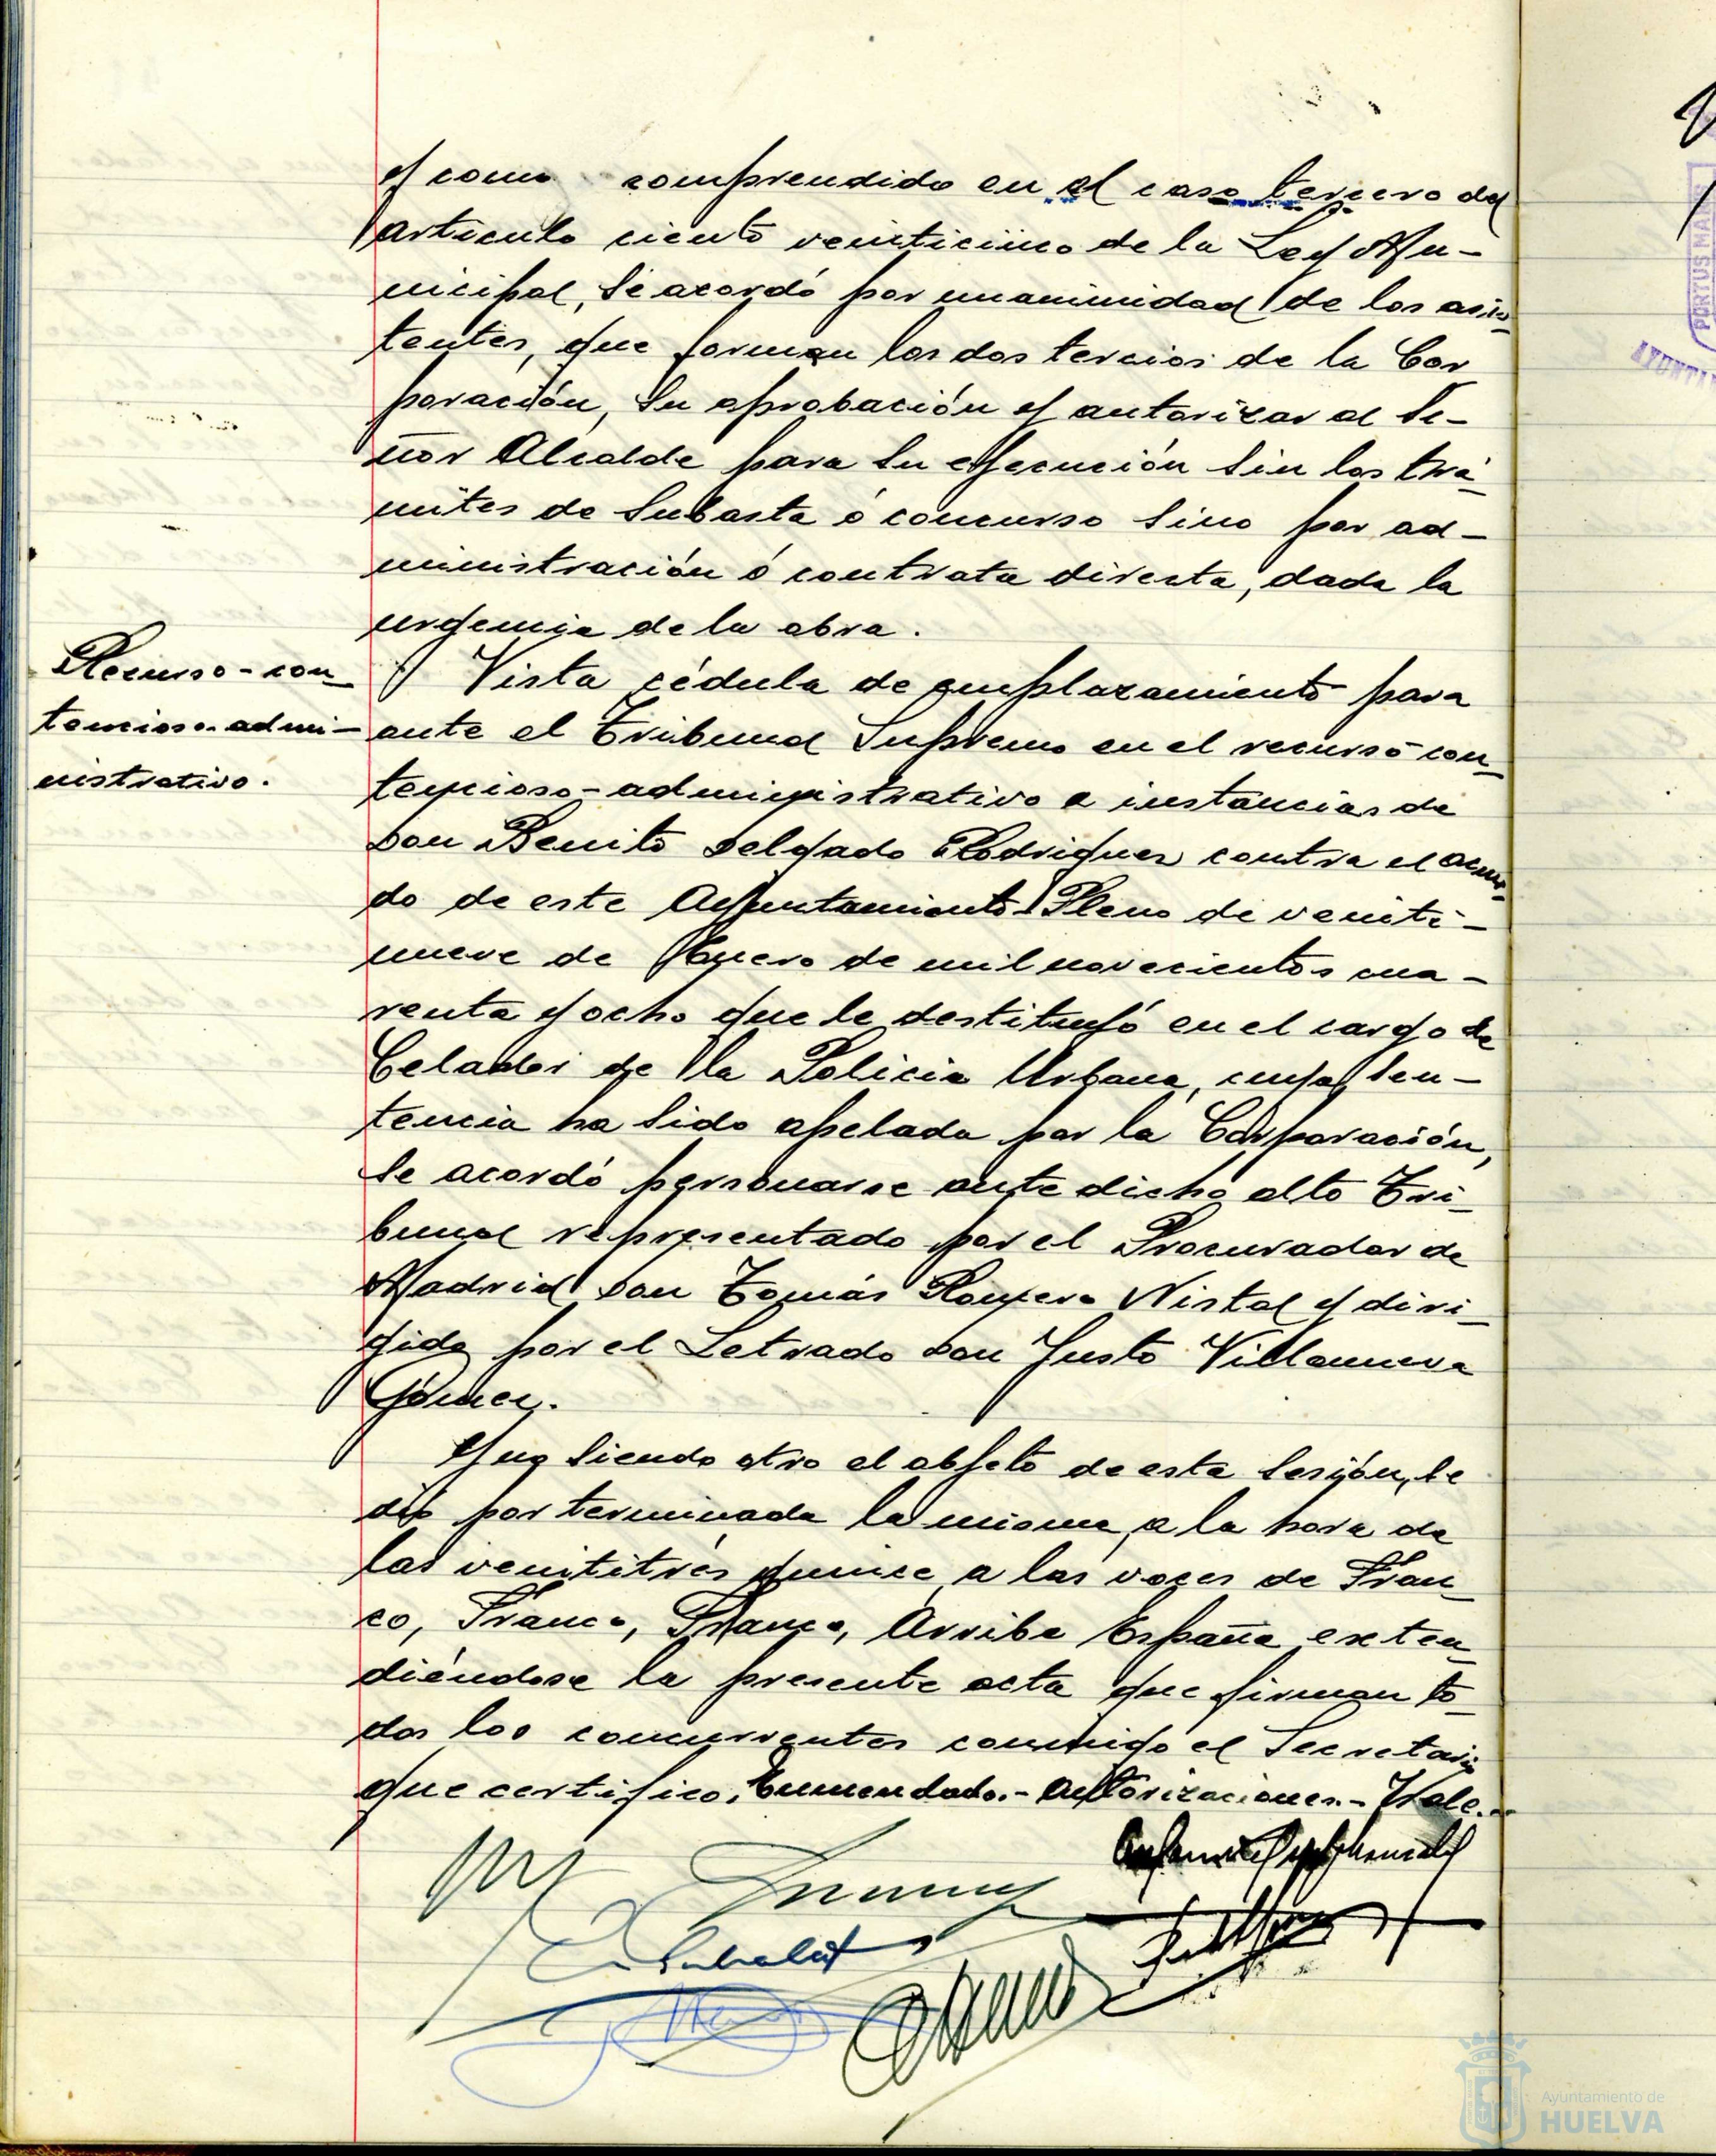 y como comprendido en el caso tercero del
artículo ciento veinticinco de la Ley Mu-
nicipal, se acordó por unanimidad de los asis-
tentes, que forman los dos tercios de la Cor
poración, su aprobación y autorizar al Se-
ñor Alcalde para su ejecución sin los trá-
mites de subasta ó concurso sino por ad-
ministración ó contrata directa, dada la
urgencia de la obra.
Recurso-con-
tencioso admi-
nistrativo.
Vista cédula de emplazamiento para
ante el Tribunal Supremo en el recurso con-
tencioso-administrativo a instancias de
Don Benito Delgado Rodriguez contra el acuer-
do de este Ayuntamiento Pleno de veinti-
nueve de Enero de mil novecientos cua-
renta y ocho que le destituyó en el cargo de
Celador de la Policia Urbana, cuya sen-
tencia ha sido apelada por la Corporación,
se acordó personarse ante dicho alto Tri-
bunal representado por el Procurador de
Madrid Don Tomás Romero Nistal y diri-
gido por el Letrado Don Justo Villanueva
Gómez.
Y no siendo otro el objeto de esta sesión, se
dió por terminada la misma, a la hora de
las veintitres quince a las voces de Fran-
co, Franco, Franco, Arriba España exten-
diéndose la presente acta que firman to-
dos los concurrentes conmigo el Secretario
que certifico. Enmendado.- autorizaciones.- Vale.-
PORTUS MA
AYUNTA
Ayuntamiento de
HUELVA